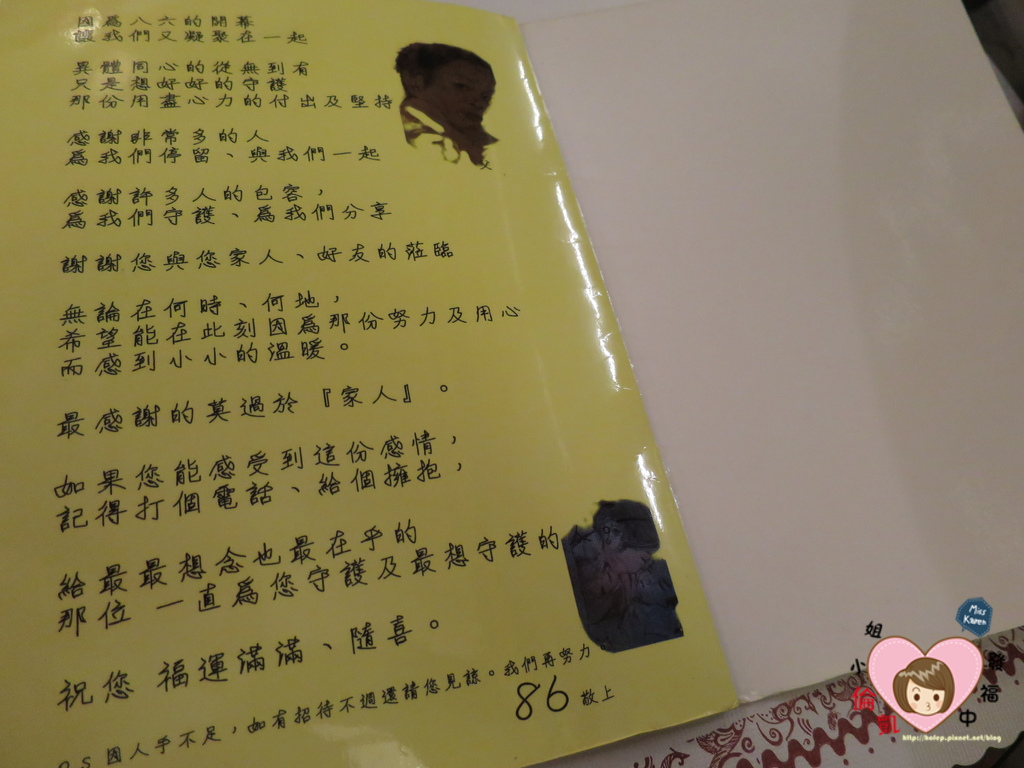 因為八六的開幕
讓我們又凝聚在一起
異體同心的從無到有
只是想好好的守護
那份用盡心力的付出及堅持
感謝非常多的人
為我們停留、與我們一起
感謝許多人的包容，
為我們守護、為我們分享
謝謝您與您家人、好友的蒞臨
無論在何時、何地，
希望能在此刻因為那份努力及用心
而感到小小的溫暖。
最感謝的莫過於『家人』。
如果您能感受到這份感情，
記得打個電話、給個擁抱，
給最最想念也最在乎的
那位 一直為您守護及最想守護的人。
祝您 福運滿滿、隨喜。
p.s 因人手不足，如有招待不週還請您見諒。我們再努力
86 敬上
Miss Karen
小姐
倫凱
幸福中
http://hofep.pixnet.net/blog